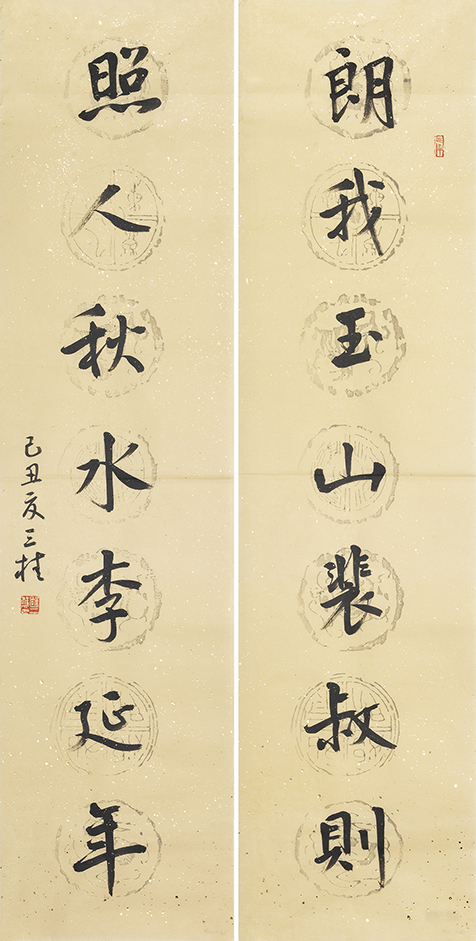 朗我玉山裴叔則
照人秋水李延年
己丑夏三桂